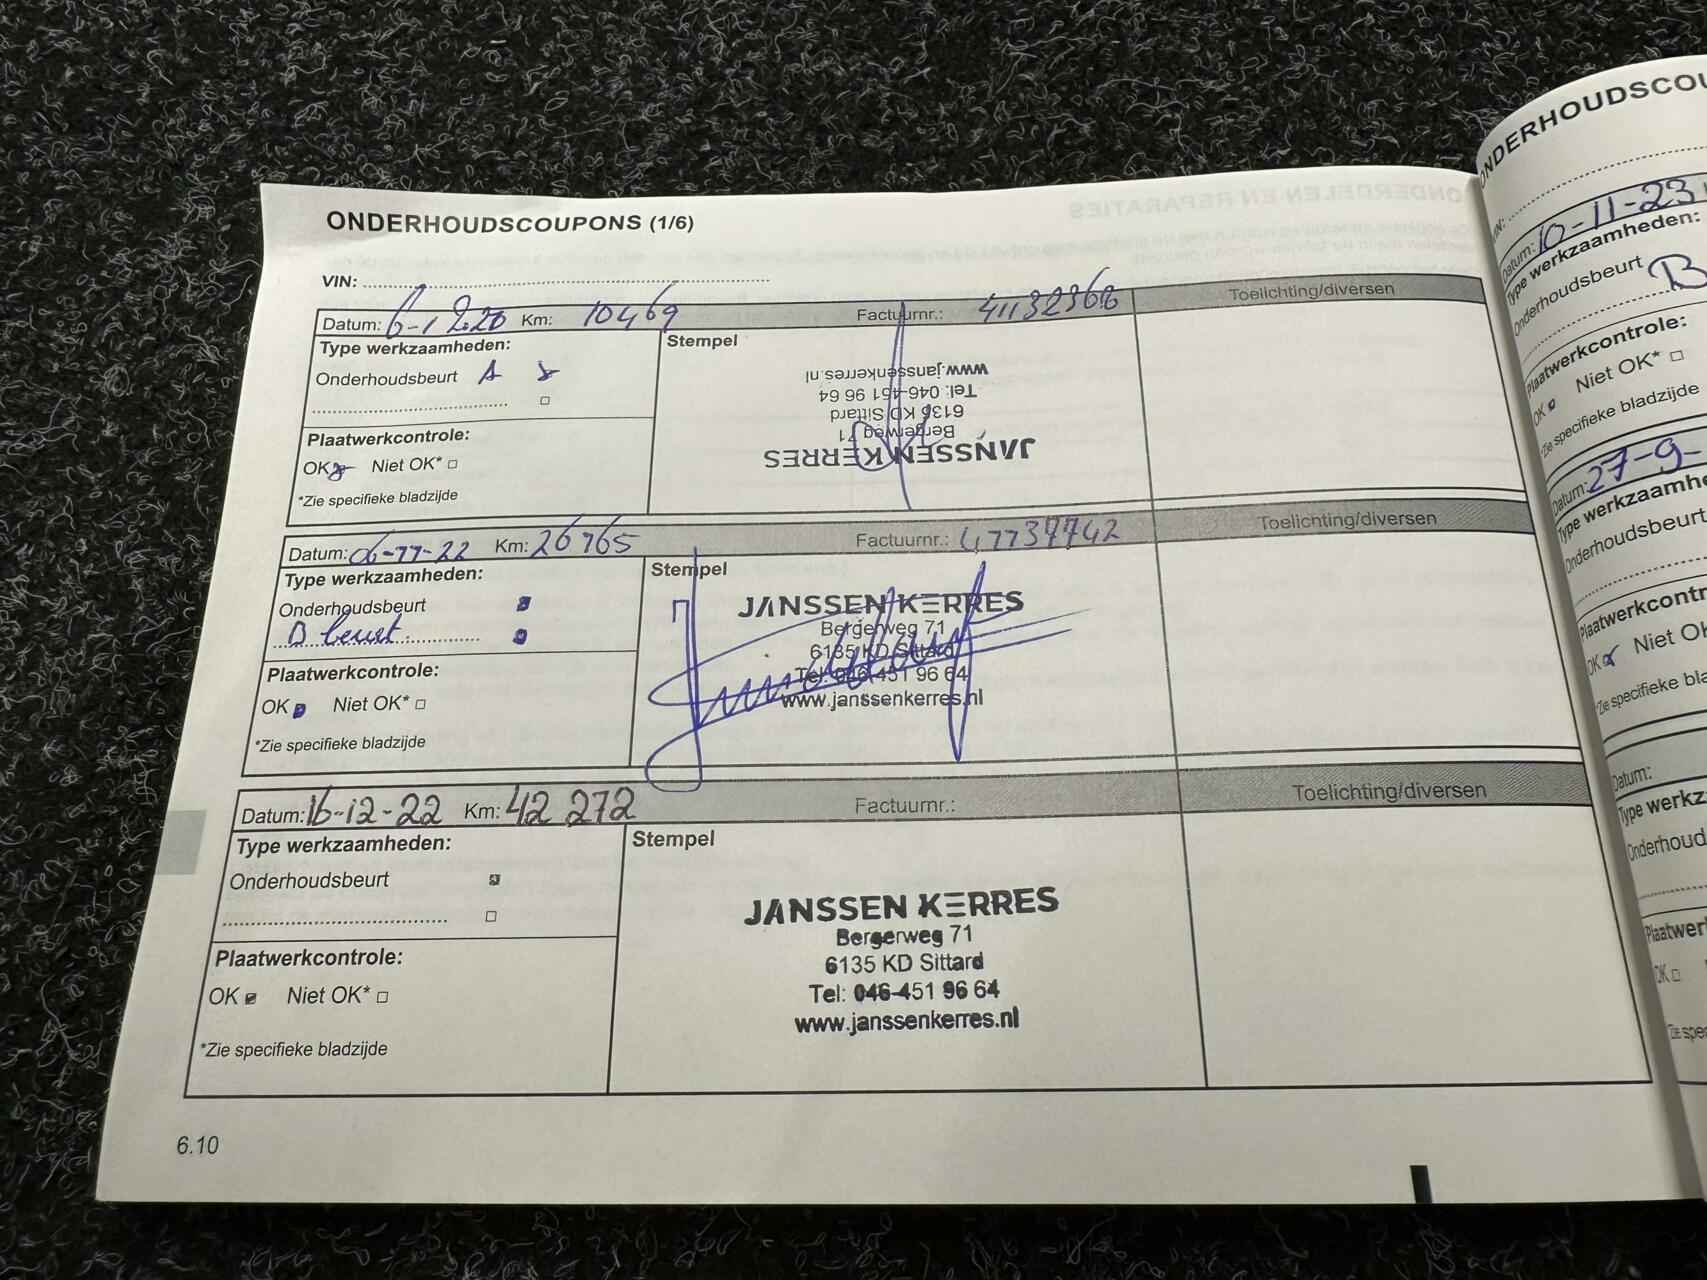 ONDERHOUDSCOUPONS (1/6)
VIN:
Datum: 6-1 2020 Km: 10469 Factuurnr.: 41132368 Toelichting/diversen
Type werkzaamheden:
Onderhoudsbeurt A
Plaatwerkcontrole:
OK Niet OK*
*Zie specifieke bladzijde
Stempel
JANSSEN KERRES
Bergerweg 71
6136 KD Sittard
Tel: 046-451 96 64
www.janssenkerres.nl
Datum: 06-11-22 Km: 26765 Factuurnr.: 47737742 Toelichting/diversen
Type werkzaamheden:
Onderhoudsbeurt
B beurt
Plaatwerkcontrole:
OK Niet OK*
*Zie specifieke bladzijde
Stempel
JANSSEN KERRES
Bergerweg 71
6135 KD Sittard
Tel: 046-451 96 64
www.janssenkerres.nl
Datum: 16-12-22 Km: 42 272 Factuurnr.: Toelichting/diversen
Type werkzaamheden:
Onderhoudsbeurt
Plaatwerkcontrole:
OK Niet OK*
*Zie specifieke bladzijde
Stempel
JANSSEN KERRES
Bergerweg 71
6135 KD Sittard
Tel: 046-451 96 64
www.janssenkerres.nl
6.10
ONDERHOUDSCOU
VIN:
Datum: 10-11-23
Type werkzaamheden:
Onderhoudsbeurt B
Plaatwerkcontrole:
OK Niet OK*
*Zie specifieke bladzijde
Datum: 27-9-
Type werkzaamhe
Onderhoudsbeurt
Plaatwerkcontr
OK Niet OK
*Zie specifieke bla
Datum:
Type werkz
Onderhoud
Plaatwer
OK